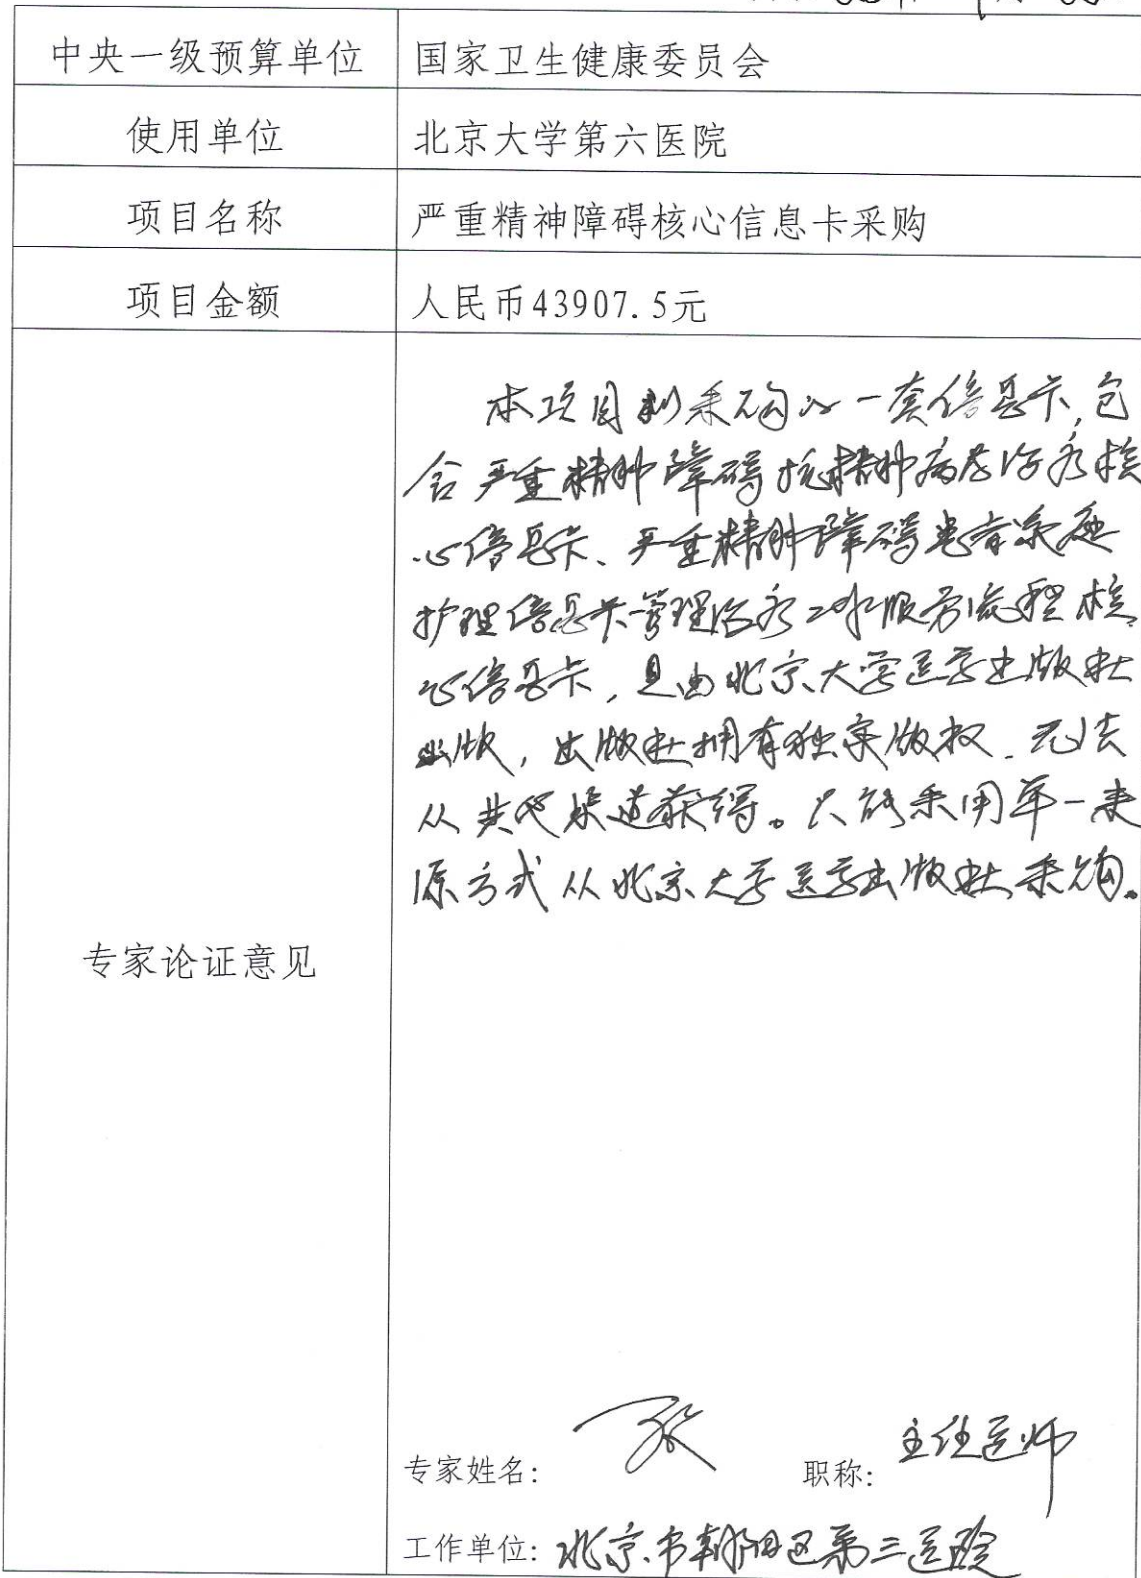 中央一级预算单位 国家卫生健康委员会
使用单位 北京大学第六医院
项目名称 严重精神障碍核心信息卡采购
项目金额 人民币43907.5元
专家论证意见
本项目 采购 一套信息卡,包
含严重精神障碍抗精神病药治疗核
心信息卡、严重精神障碍患者家庭
护理信息卡管理治疗 服务流程核
心信息卡,是由北京大学医学出版社
出版,出版社拥有独家版权.无法
从其他渠道获得。只能采用单一来
源方式从北京大学医学出版社采购。
专家姓名: 职称:主任医师
工作单位:北京市朝阳区第三医院